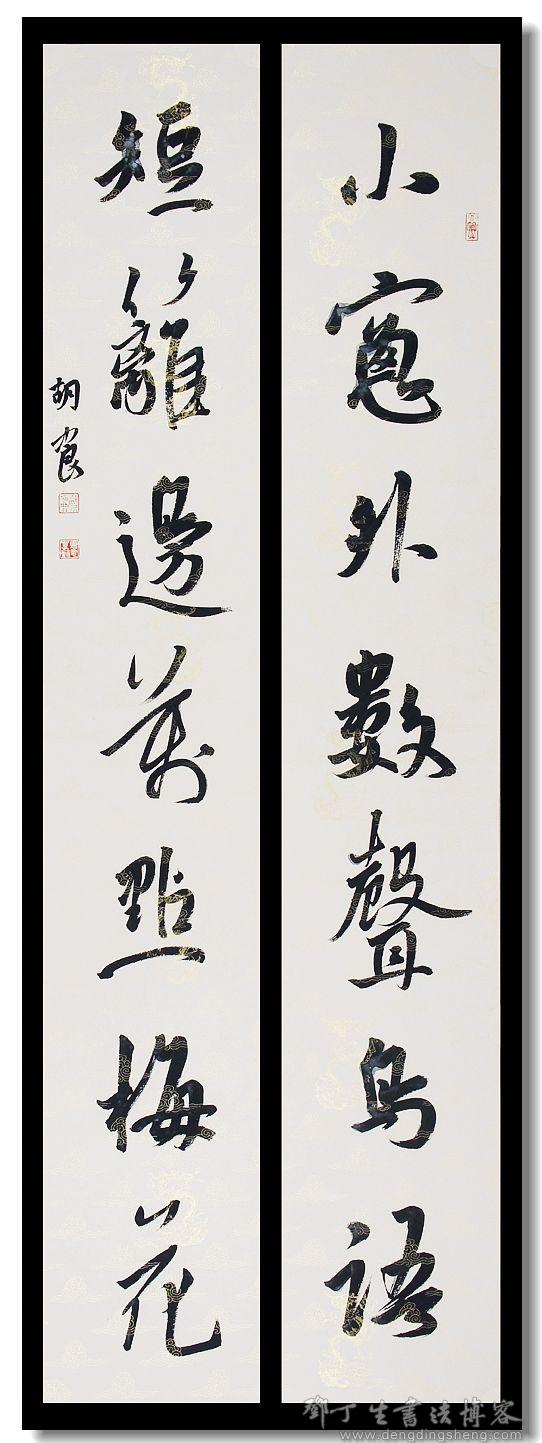 小窗外數聲鳥語
短籬邊萬點梅花
胡
鄧丁生書法博客
www.dengdingsheng.com